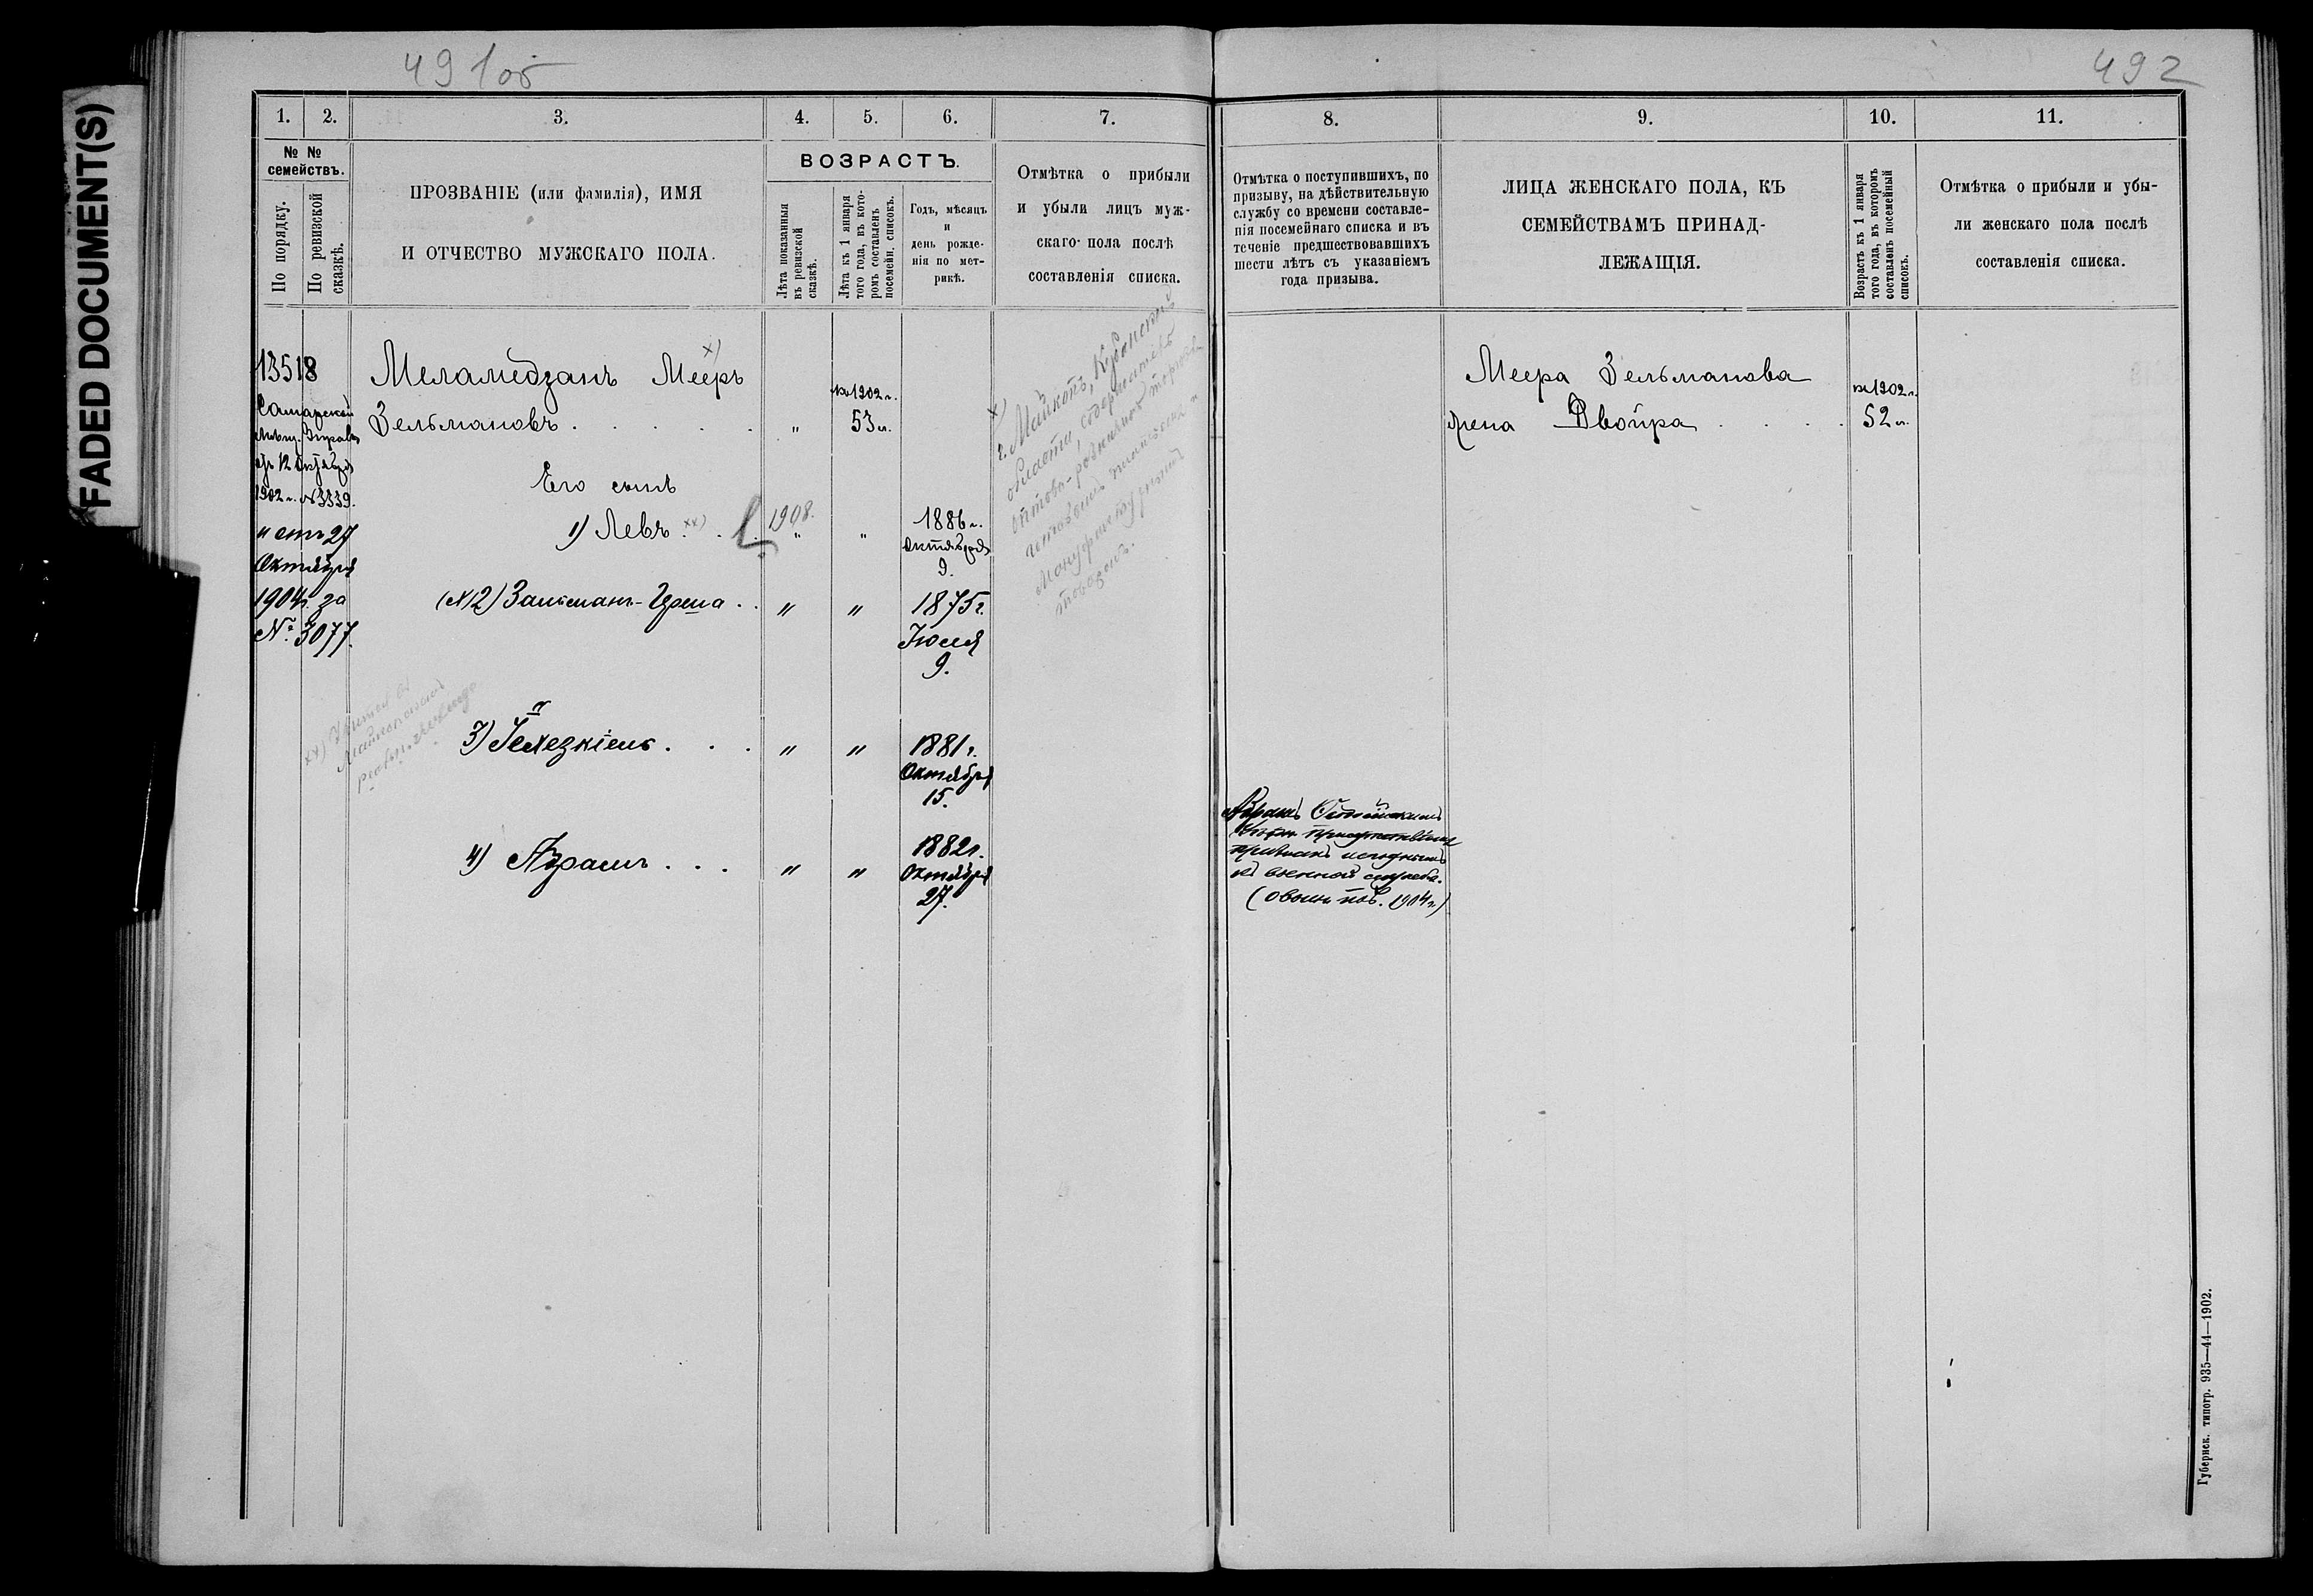 FADED DOCUMENT(S)
491об
492
1.
2.
3.
4.
5.
6.
7.
8.
9.
10.
11.
№ №
семействъ.
По порядку.
По ревизской
сказкѣ.
ПРОЗВАНІЕ (или фамилія), ИМЯ
И ОТЧЕСТВО МУЖСКАГО ПОЛА.
ВОЗРАСТЪ.
Лѣта показанныя
въ ревизской
сказкѣ.
Лѣта къ 1 января
того года, въ кото-
ромъ составленъ
посемейн. списокъ.
Годъ, мѣсяцъ
и
день рожде-
нія по мет-
рикѣ.
Отмѣтка о прибыли
и убыли лицъ муж-
скаго пола послѣ
составленія списка.
Отмѣтка о поступившихъ, по
призыву, на дѣйствительную
службу со времени составле-
нія посемейнаго списка и въ
теченіе предшествовавшихъ
шести лѣтъ съ указаніемъ
года призыва.
ЛИЦА ЖЕНСКАГО ПОЛА, КЪ
СЕМЕЙСТВАМЪ ПРИНАД-
ЛЕЖАЩІЯ.
Возрастъ къ 1 января
того года, въ которомъ
составленъ посемейный
списокъ.
Отмѣтка о прибыли и убы-
ли женскаго пола послѣ
составленія списка.
13518
Самарской
Мѣщ. Управы
12 Октября
1902 г. №3339.
и отъ 27
Октября
1904г. за
№ 3077.
Меламедзанъ Мееръ x)
Зельмановъ . . . . . „
на 1902 г.
53 л.
Его сынъ
1) Левъ xx) . . 1908. „ „ 1886 г.
Октября
9.
(№2) Залманъ-Ирма . . „ „ 1875 г.
Іюля
9.
xx)
Майкопскомъ
реальн. училищѣ
3) Іехезкіель . . . „ „ 1881 г.
Октября
15.
4) Абрамъ . . . „ „ 1882 г.
Октября
27.
x)
г. Майкопъ, Кубанской
области, содержитель
оптово-розничной торговли
мануфактурнымъ
товаромъ.
Абрамъ
Присутствіемъ
признанъ негоднымъ
къ военной службѣ.
1904 г.)
Меера Зельманова
жена Двойра . . . .
на 1902 г.
52 л.
Губернск. типогр. 935—44—1902.